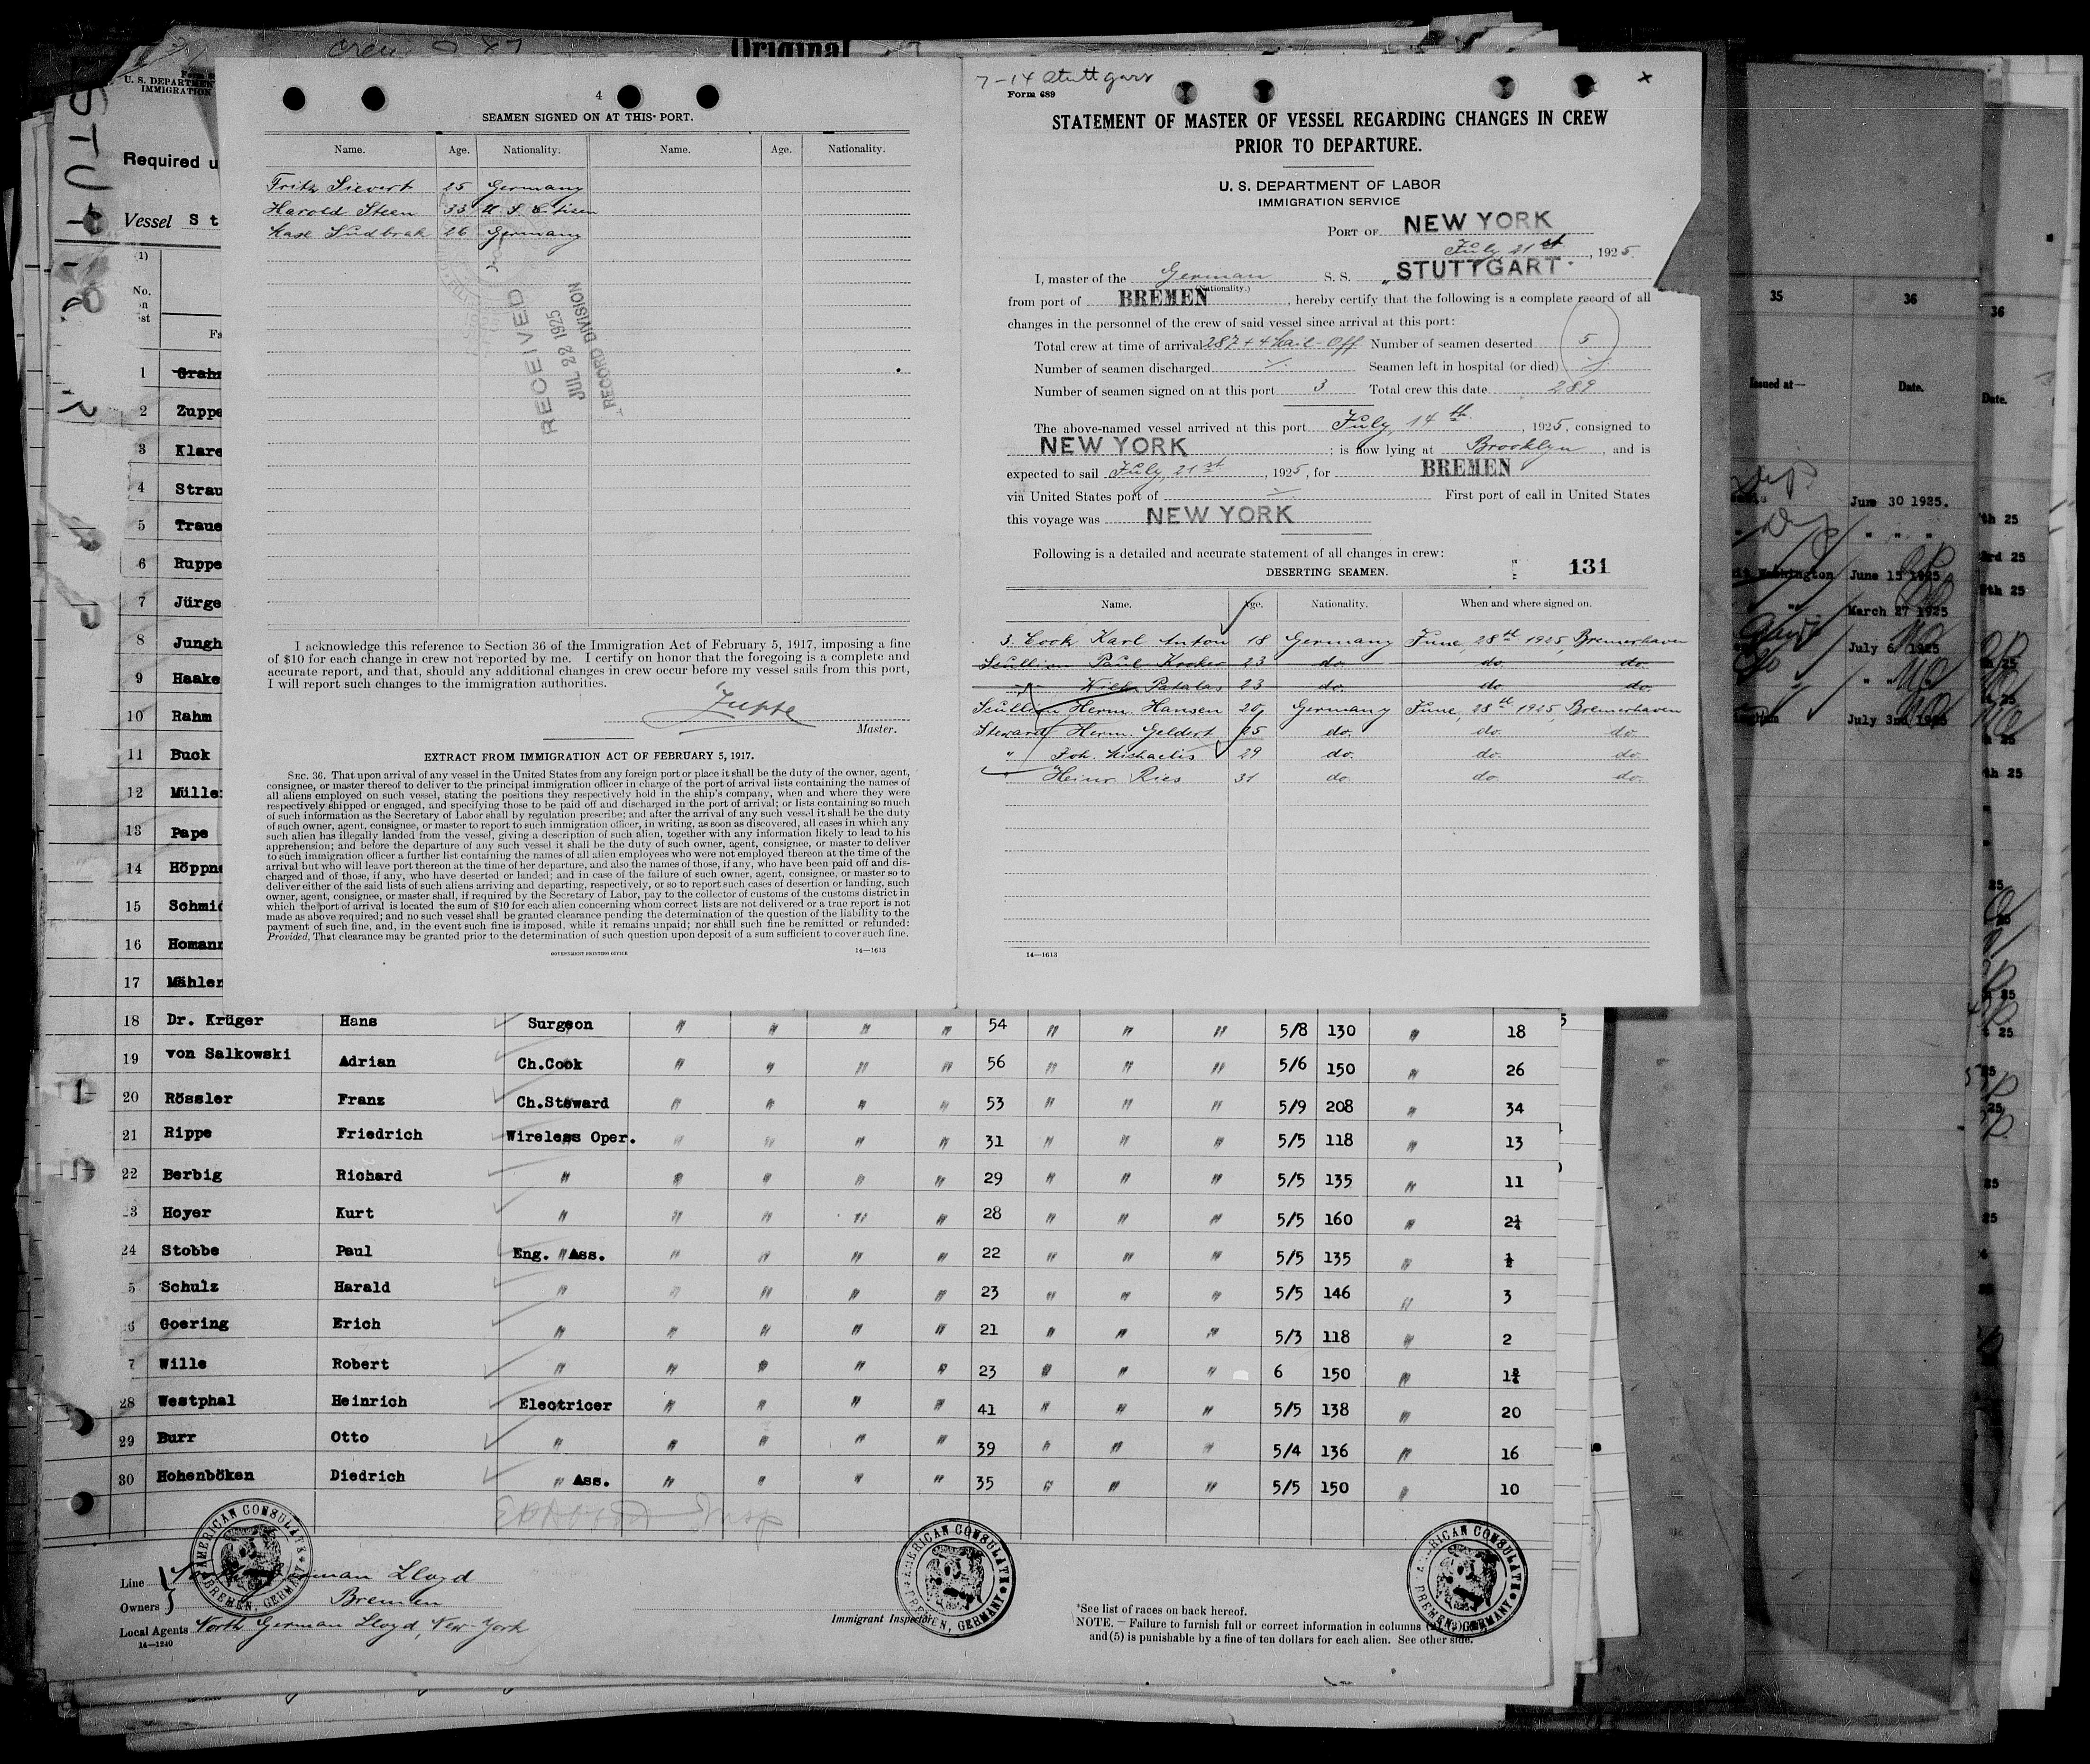 Original
STUTTGART
U. S. DEPARTMENT
IMMIGRATION
Required u
Vessel St
(1)
No.
Fa
1 Grahn
2 Zuppe
3 Klare
4 Strau
5 Traue
6 Ruppe
7 Jürge
8 Jungh
9 Haake
10 Rahm
11 Buck
12 Mülle
13 Pape
14 Höppne
15 Schmid
16 Homann
17 Mähler
4
SEAMEN SIGNED ON AT THIS PORT.
Name. Age. Nationality. Name. Age. Nationality.
Fritz Sievert 25 Germany
Harold Steen 33 U. S. Citizen
Sudbrak 26 Germany
RECEIVED
JUL 22 1925
RECORD DIVISION
I acknowledge this reference to Section 36 of the Immigration Act of February 5, 1917, imposing a fine
of $10 for each change in crew not reported by me. I certify on honor that the foregoing is a complete and
accurate report, and that, should any additional changes in crew occur before my vessel sails from this port,
I will report such changes to the immigration authorities.
Master.
EXTRACT FROM IMMIGRATION ACT OF FEBRUARY 5, 1917.
SEC. 36. That upon arrival of any vessel in the United States from any foreign port or place it shall be the duty of the owner, agent,
consignee, or master thereof to deliver to the principal immigration officer in charge of the port of arrival lists containing the names of
all aliens employed on such vessel, stating the positions they respectively hold in the ship's company, when and where they were
respectively shipped or engaged, and specifying those to be paid off and discharged in the port of arrival; or lists containing so much
of such information as the Secretary of Labor shall by regulation prescribe; and after the arrival of any such vessel it shall be the duty
of such owner, agent, consignee, or master to report to such immigration officer, in writing, as soon as discovered, all cases in which any
such alien has illegally landed from the vessel, giving a description of such alien, together with any information likely to lead to his
apprehension; and before the departure of any such vessel it shall be the duty of such owner, agent, consignee, or master to deliver
to such immigration officer a further list containing the names of all alien employees who were not employed thereon at the time of the
arrival but who will leave port thereon at the time of her departure, and also the names of those, if any, who have been paid off and dis-
charged and of those, if any, who have deserted or landed; and in case of the failure of such owner, agent, consignee, or master so to
deliver either of the said lists of such aliens arriving and departing, respectively, or so to report such cases of desertion or landing, such
owner, agent, consignee, or master shall, if required by the Secretary of Labor, pay to the collector of customs of the customs district in
which the port of arrival is located the sum of $10 for each alien concerning whom correct lists are not delivered or a true report is not
made as above required; and no such vessel shall be granted clearance pending the determination of the question of the liability to the
payment of such fine, and, in the event such fine is imposed, while it remains unpaid; nor shall such fine be remitted or refunded:
Provided, That clearance may be granted prior to the determination of such question upon deposit of a sum sufficient to cover such fine.
GOVERNMENT PRINTING OFFICE 14—1613
7-14 Stuttgart
Form 689
STATEMENT OF MASTER OF VESSEL REGARDING CHANGES IN CREW
PRIOR TO DEPARTURE.
U. S. DEPARTMENT OF LABOR
IMMIGRATION SERVICE
PORT OF NEW YORK
July 21st, 1925.
I, master of the German S. S. "STUTTGART"
(Nationality.)
from port of BREMEN, hereby certify that the following is a complete record of all
changes in the personnel of the crew of said vessel since arrival at this port:
Total crew at time of arrival 287 + 4 Mail-Off Number of seamen deserted 5
Number of seamen discharged Seamen left in hospital (or died)
Number of seamen signed on at this port 3 Total crew this date 289
The above-named vessel arrived at this port July, 14th, 1925, consigned to
NEW YORK; is now lying at Brooklyn, and is
expected to sail July, 21st, 1925, for BREMEN
via United States port of First port of call in United States
this voyage was NEW YORK
Following is a detailed and accurate statement of all changes in crew:
DESERTING SEAMEN. 131
Name. Age. Nationality. When and where signed on.
3. Cook Karl Anton 18 Germany June, 28th 1925, Bremerhaven
Scullion Paul Kocher 23 do. do. do.
" Wilh. Patalas 23 do. do. do.
Scullion Herm. Hansen 20 Germany June, 28th 1925, Bremerhaven
Steward Herm. Geldert 25 do. do. do.
" Joh. Michaelis 29 do. do. do.
Heinr. Ries 31 do. do. do.
14—1613
18 Dr. Krüger Hans Surgeon " " " " 54 " " " 5/8 130 " 18
19 von Salkowski Adrian Ch.Cook " " " " 56 " " " 5/6 150 " 26
20 Rössler Franz Ch.Steward " " " " 53 " " " 5/9 208 " 34
21 Rippe Friedrich Wireless Oper. " " " " 31 " " " 5/5 118 " 13
22 Berbig Richard " " " " " 29 " " " 5/5 135 " 11
23 Hoyer Kurt " " " " " 28 " " " 5/5 160 " 2¼
24 Stobbe Paul Eng. "Ass. " " " " 22 " " " 5/5 135 " ½
5 Schulz Harald " " " " " 23 " " " 5/5 146 " 3
6 Goering Erich " " " " " 21 " " " 5/3 118 " 2
7 Wille Robert " " " " " 23 " " " 6 150 "
28 Westphal Heinrich Electricer " " " " 41 " " " 5/5 138 " 20
29 Burr Otto " " " " " 39 " " " 5/4 136 " 16
30 Hohenböken Diedrich " Ass. " " " " 35 " " " 5/5 150 " 10
AMERICAN CONSULATE BREMEN, GERMANY
AMERICAN CONSULATE BREMEN, GERMANY
AMERICAN CONSULATE BREMEN, GERMANY
Line North German Lloyd
Owners Bremen
Local Agents North German Lloyd, New-York
14—1240
Immigrant Inspector.
*See list of races on back hereof.
NOTE. — Failure to furnish full or correct information in columns
and (5) is punishable by a fine of ten dollars for each alien. See other side.
35 36
Issued at— Date.
June 30 1925.
" " "
Washington June 15 1925
" March 27 1925
July 6 1925
" " "
July 3rd 1925
36
Date.